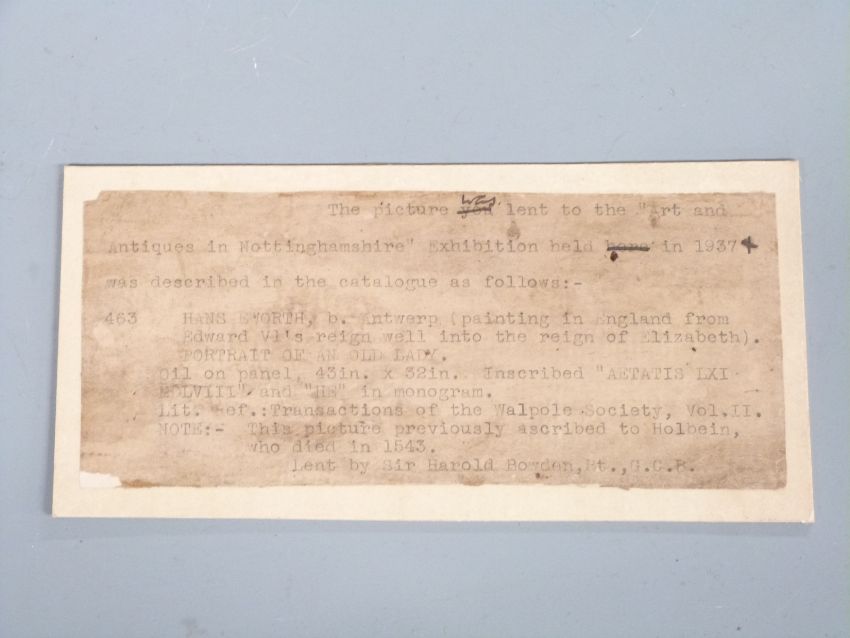 The picture was lent to the "Art and
Antiques in Nottinghamshire" Exhibition held in 1937
was described in the catalogue as follows:-
463 HANS EWORTH, b. Antwerp (painting in England from
Edward VI's reign well into the reign of Elizabeth).
PORTRAIT OF AN OLD LADY.
Oil on panel, 43in. x 32in. Inscribed "AETATIS LXI
MDLVIII" and "HE" in monogram.
Lit. Ref.:Transactions of the Walpole Society, Vol.II.
NOTE:- This picture previously ascribed to Holbein,
who died in 1543.
Lent by Sir Harold Bowden,Bt.,G.C.B.